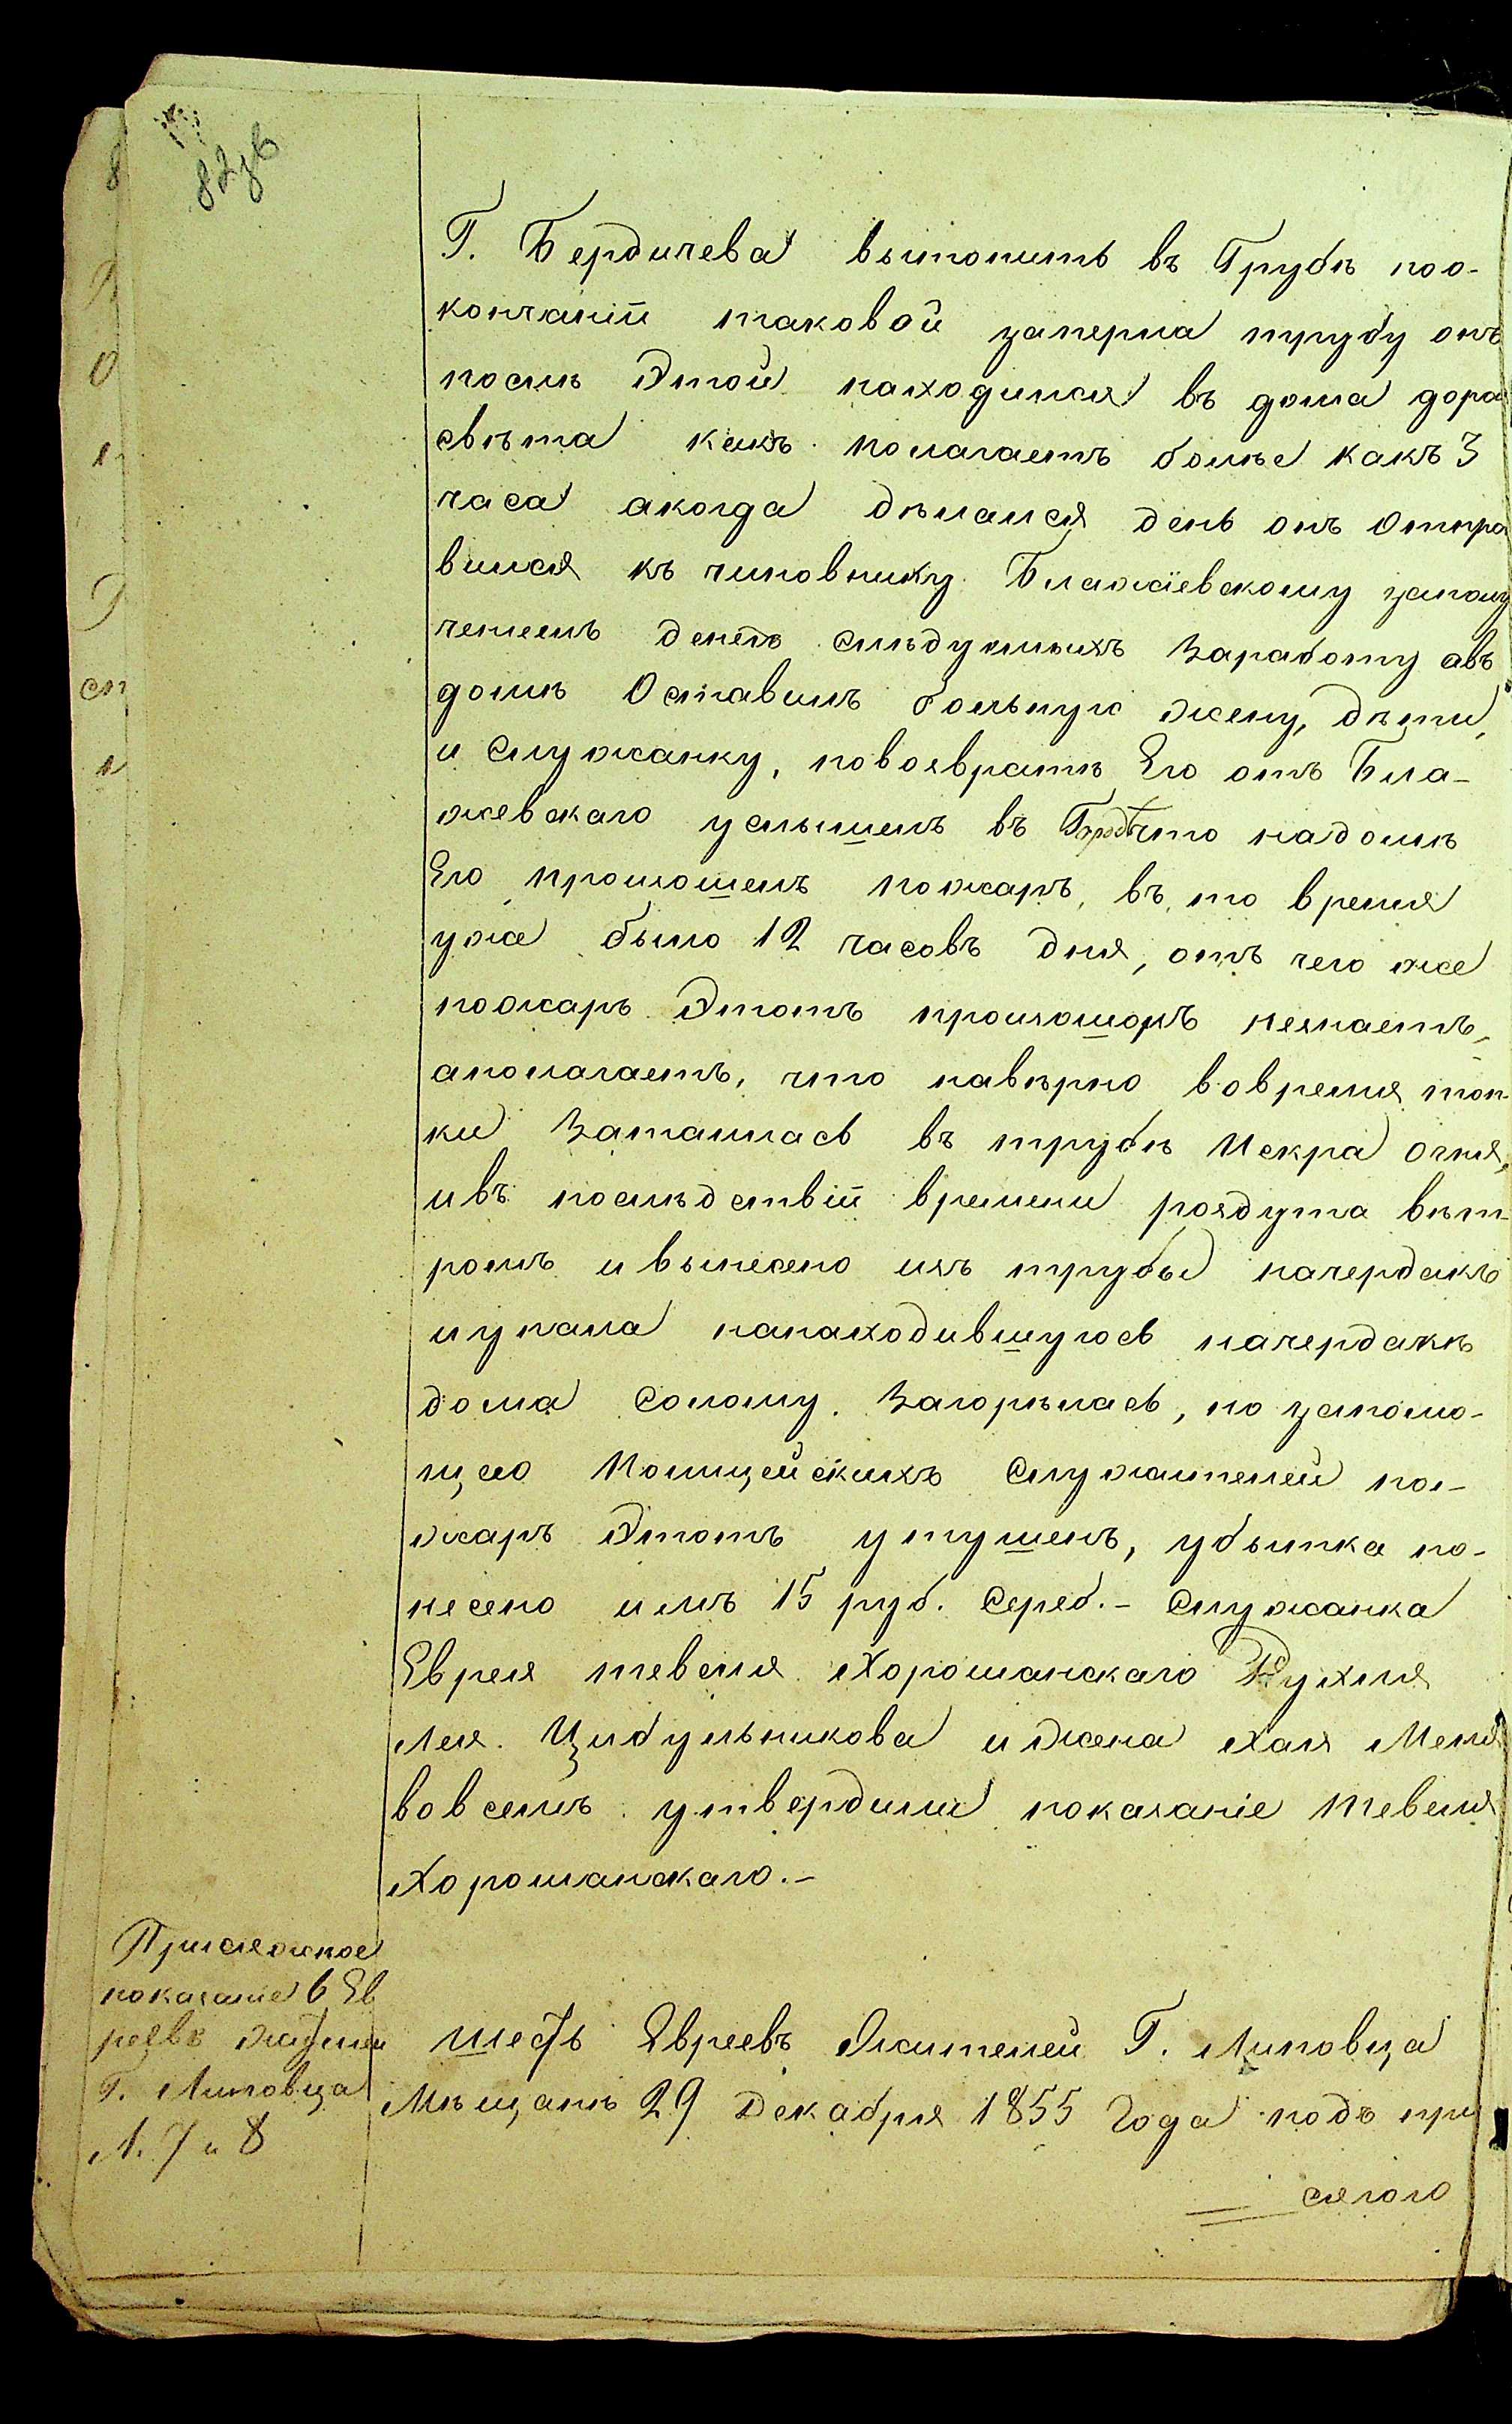 82 зв
Г. Бердичева вытопить въ Грубѣ поо-
кончаніи таковой заперла трубу онъ
послѣ Этой находился въ дома дора
свѣта какъ полагаетъ болѣе какъ 3
часа акогда дѣлался день онъ Отпра
вился къ чиновнику Блажіевскому заполу
ченіемъ денегъ слѣдуемыхъ Заработу авъ
домѣ Оставилъ больную жену, дѣти,
и Служанку, повозвратѣ Его отъ Бла-
жевскаго услышелъ въ Городѣ что надомѣ
Его произошелъ пожаръ, въ то время
уже было 12 часовъ дня, отъ чего же
пожаръ Этотъ произошолъ незнаетъ,
аполагаетъ, что навѣрно вовремя топ
ки Заталилась въ трубѣ Искра огня,
ивъ послѣдствіи времени роздута вѣт
ромъ и вынесено изъ трубы начердакъ
иупала нанаходившуюсь начердакѣ
дома Солому. Загорѣлась, но запомо-
щею Полицейскихъ Служителей по-
жаръ Этотъ утушенъ, убытка по-
несено имъ 15 руб. Сереб.- Служанка
Еврея тевеля Хорошанскаго Рухля
Лея. Цибульникова и жена Хая Меня
вовсемъ утвердили показаніе тевеля
Хорошанскаго.-
Присяжное
показаніе 6 Ев
реевъ жителей
Г. Липовца
Л. 7 и 8
шесть Евреевъ Жителей Г. Липовца
Мѣщанъ 29 Декабря 1855 Года подъ при
сягою